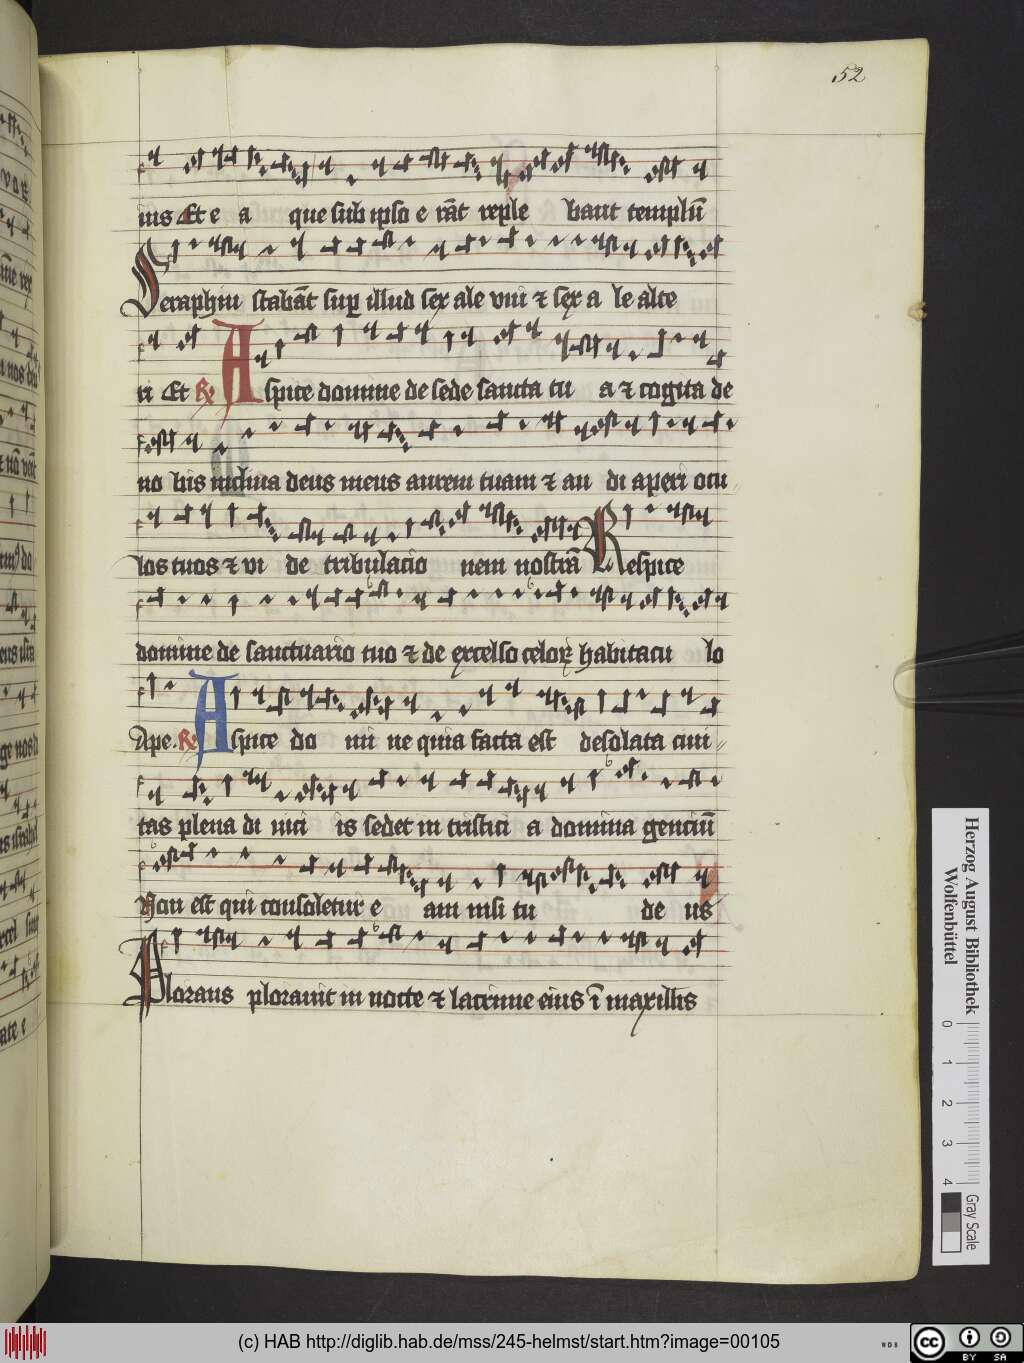 52
ius Et e a que sub ipso e rāt reple bant templū
Seraphin stabāt sup illud sex ale vni et sex a le alte
ri Et R Aspice domine de sede sancta tu a et cogita de
no bis inclina deus meus aurem tuam et au di aperi ocu
los tuos et vi de tribulacio nem nostrā Respice
domine de sanctuario tuo et de excelso celoꝝ habitacu lo
Ape. R Aspice do mi ne quia facta est desolata ciui
tas plena di uici is sedet in tristici a domina genciū
Non est qui consoletur e am nisi tu de us
Plorans plorauit in nocte et lacrime eius ī maxillis
Herzog August Bibliothek
Wolfenbüttel
0 1 2 3 4
Gray Scale
(c) HAB http://diglib.hab.de/mss/245-helmst/start.htm?image=00105
WDB
cc BY SA